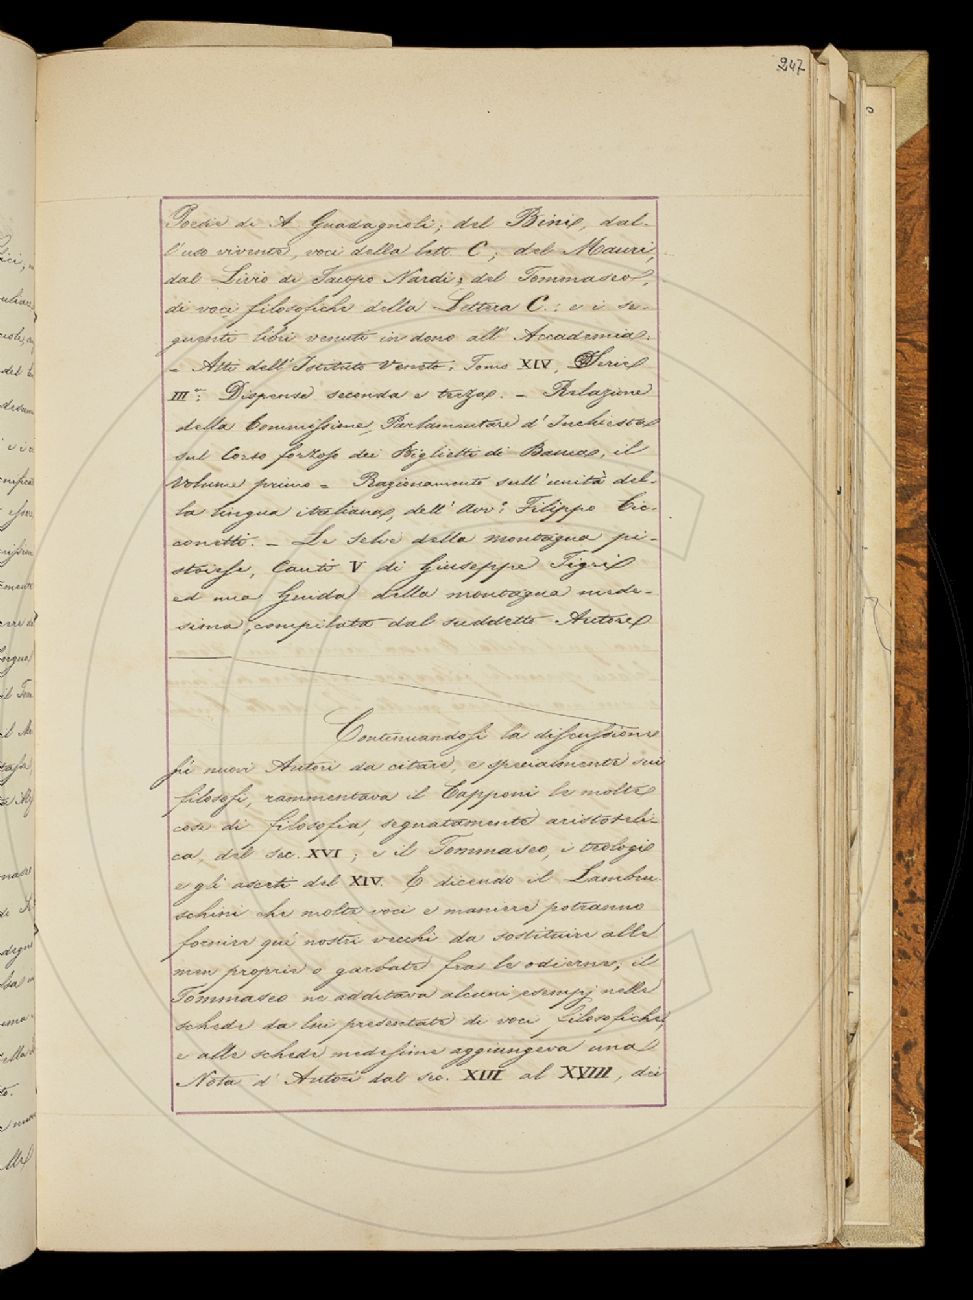 247
Poesie di A. Guadagnoli; del Bini, dal-
l'uso vivente, voci della lett. C; del Mauri,
dal Livio di Jacopo Nardi; del Tommaseo,
di voci filosofiche della Lettera C.: e i se-
guenti libri venuti in dono all'Accademia.
- Atti dell'Istituto Veneto. Tomo XIV, Serie
III.ª: Dispense seconda e terza. - Relazione
della Commissione Parlamentare d'Inchiesta
sul Corso forzoso dei Biglietti di Banca, il
Volume primo - Ragionamento sull'unità del-
la lingua italiana, dell'Avv.º Filippo Cic-
conetti. - Le Selve della montagna pi-
stoiese, Canti V di Giuseppe Tigri
ed una Guida della montagna mede-
sima, compilata dal suddetto Autore
Continuandosi la discussione
su nuovi Autori da citare, e specialmente sui
filosofi, rammentava il Capponi le molte
cose di filosofia, segnatamente aristoteli-
ca, del sec. XVI; e il Tommaseo, i teologi
e gli asceti del XIV. E dicendo il Lambru
schini che molte voci e maniere potranno
fornire qui nostri vecchi da sostituire alle
men proprie o garbate fra le odierne, il
Tommaseo ne additava alcuni esempj nelle
schede da lui presentate di voci filosofiche,
e alle schede medesime aggiungeva una
Nota d'Autori dal sec. XIII al XVIII, dei